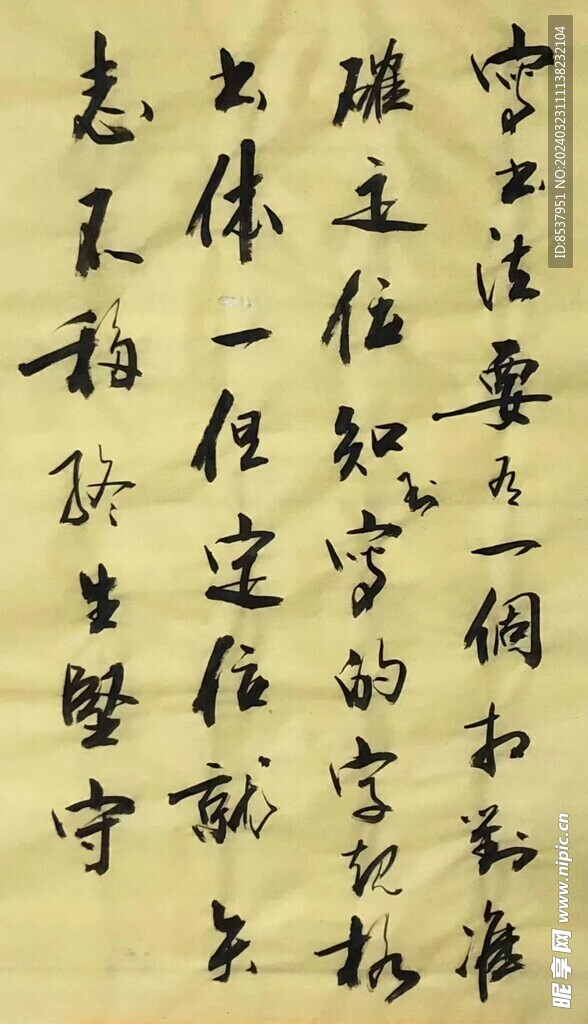 寫书法要有一個相對准
確定位知到寫的字規格
书体一但定位就矢
志不移終生堅守
ID:8537951 NO:20240323111138232104
昵享网 www.nipic.cn